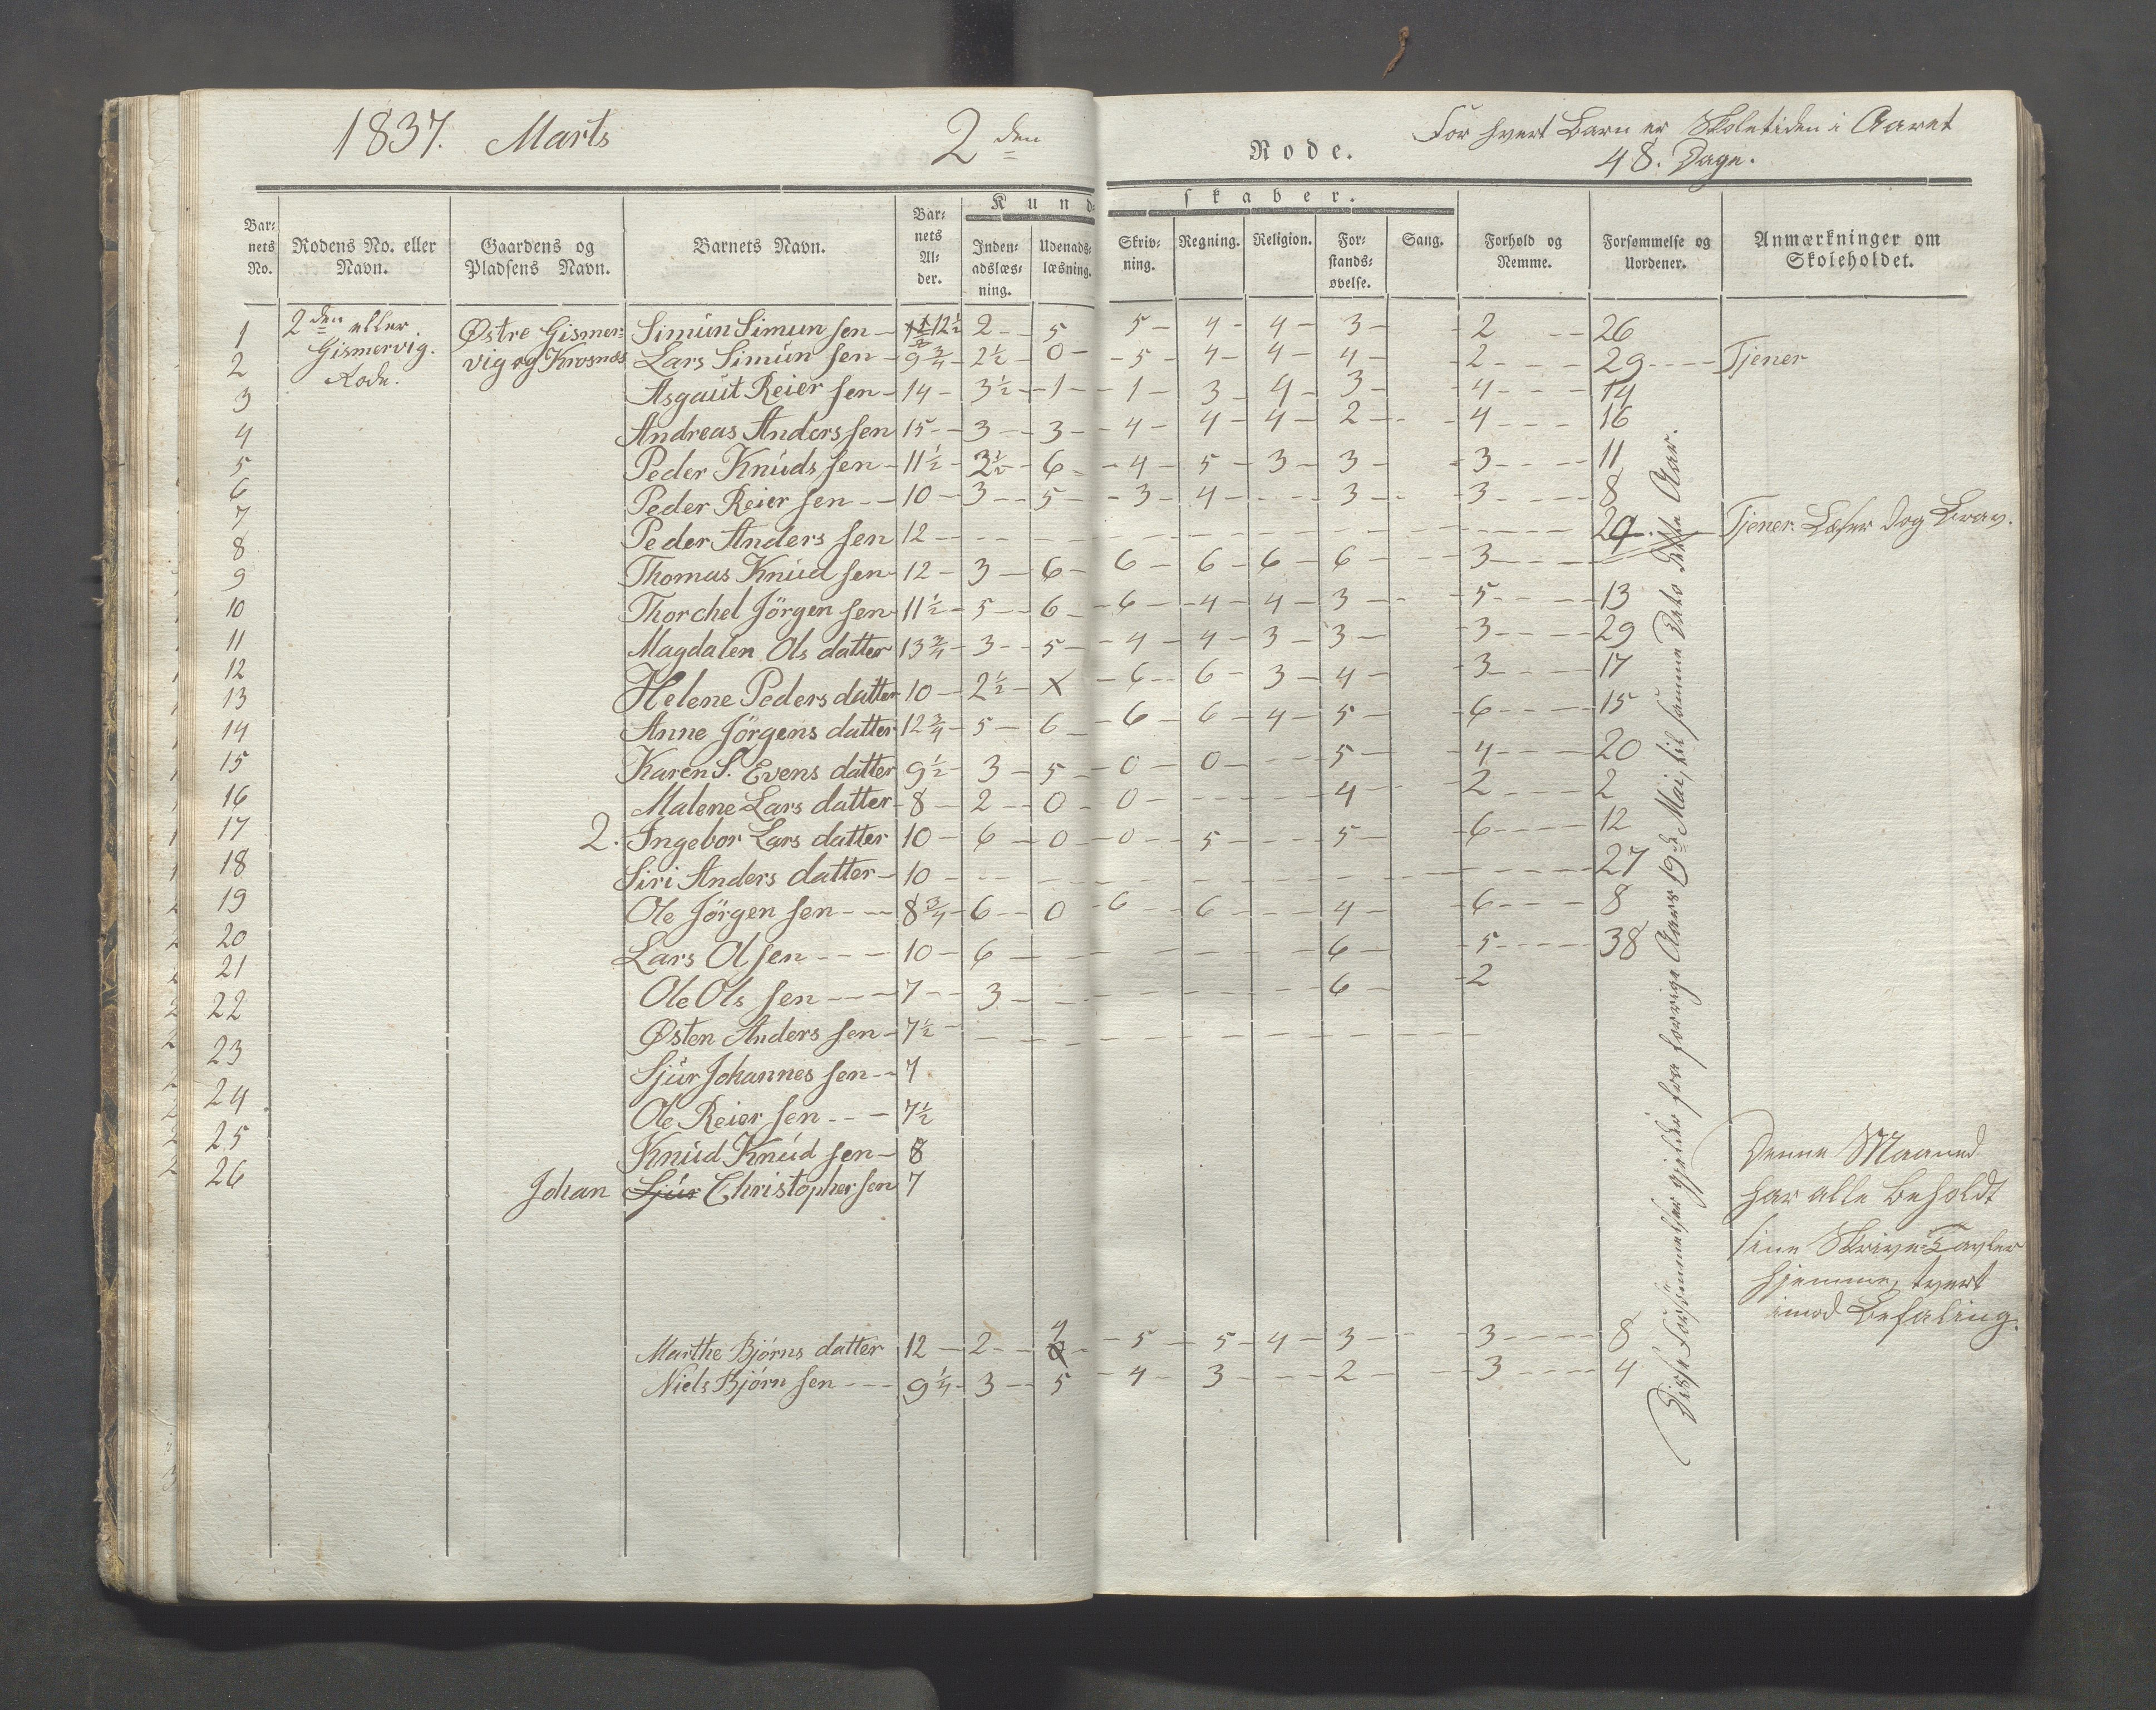 1837. Marts 2den Rode. For hvert Barn er Skoletiden i Aaret
48. Dage.
Kundskaber.
Bar-nets No. Rodens No. eller Navn. Gaardens og Pladsens Navn. Barnets Navn. Bar-nets Al-der. Inden-adslæs-ning. Udenads-læsning. Skriv-ning. Regning. Religion. For-stands-øvelse. Sang. Forhold og Nemme. Forsømmelse og Uordener. Anmærkninger om Skoleholdet.
1 2den eller Østre Gismer- Simun Simun sen 12½ 2 5 5 4 4 3 2 26
2 Gismervig. vig og Krosnæs Lars Simun sen 9¾ 2½ 0 5 4 4 4 2 29 Tjener
3 Rode. Asgaut Reier sen 14 3½ 1 1 3 4 3 4 14
4 Andreas Anders sen 15 3 3 4 4 4 2 4 16
5 Peder Knuds sen 11½ 3½ 6 4 5 3 3 3 11
6 Peder Reier sen 10 3 5 3 4 3 3 8
7 Peder Anders sen 12 29 Tjener. Læser dog brav.
8 Thomas Knud sen 12 3 6 6 6 6 6 3
9 Thorchel Jörgen sen 11½ 5 6 6 4 4 3 5 13
10 Magdalen Ols datter 13¾ 3 5 4 4 3 3 3 29
11 Helene Peders datter 10 2½ x 6 6 3 4 3 17
12 Anne Jörgens datter 12¾ 5 6 6 6 4 5 6 15
13 Karen S. Evens datter 9½ 3 5 0 0 5 4 20
14 Malene Lars datter 8 2 0 0 4 2 2
15 2. Ingebor Lars datter 10 6 0 0 5 5 6 12
16 Siri Anders datter 10 27
17 Ole Jörgen sen 8¾ 6 0 6 6 4 6 8
18 Lars Ol sen 10 6 6 5 38
19 Ole Ols sen 7 3 6 2
20 Østen Anders sen 7½
21 Sjur Johannes sen 7
22 Ole Reier sen 7½
23 Knud Knud sen 8
24 Johan Sjur Christopher sen 7
25
26
Denne Maaned
har alle beholdt
sine Skrive-Tavler
hjemme, tvert
imod Befaling.
Marthe Bjørns datter 12 2 4 5 5 4 3 3 8
Niels Bjørn sen 9¼ 3 5 4 3 2 3 4
Disse Forsømmelser gjelder fra forrige Aars 19de Mai, til samme Dato dette Aar.